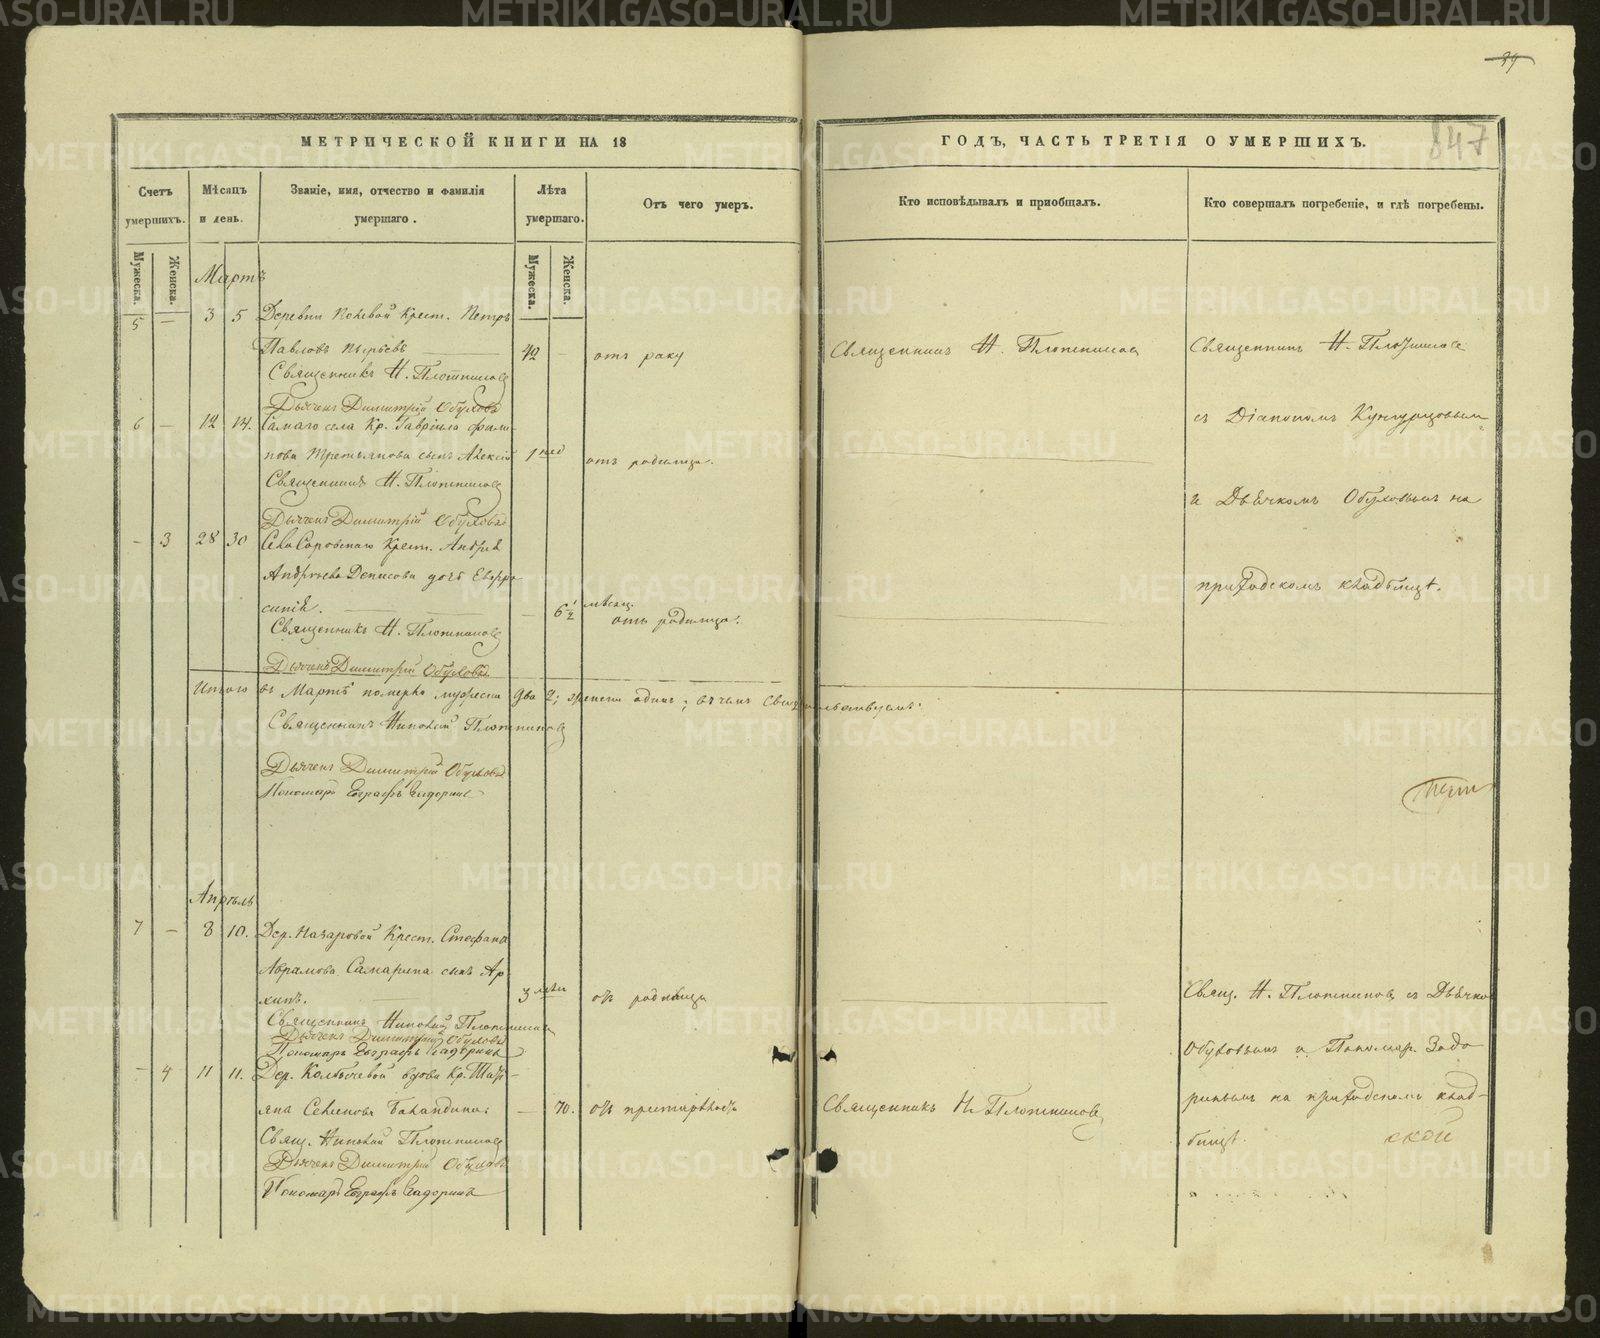 39
847
МЕТРИЧЕСКОЙ КНИГИ НА 18
ГОДЪ, ЧАСТЬ ТРЕТІЯ О УМЕРШИХЪ.
Счетъ умершихъ.
Мѣсяцъ и день.
Званіе, имя, отчество и фамилія умершаго.
Лѣта умершаго.
Отъ чего умеръ.
Кто исповѣдывалъ и пріобщалъ.
Кто совершалъ погребеніе, и гдѣ погребены.
Мужеска.
Женска.
Мужеска.
Женска.
Мартъ
5 — 3 5 Деревни Крест. Петръ
Павловъ — 42 — отъ раку Священникъ Н. Плотниковъ Священникъ Н. Плотниковъ
Священникъ Н. Плотниковъ
Дьячекъ Димитрій Обуховъ съ Діакономъ
6 — 12 14. Самаго села Кр. Гавріила Фили-
пова Третьякова сынъ Алексій 1 нед отъ родимца.
Священникъ Н. Плотниковъ и Дьячкомъ Обуховымъ на
Дьячекъ Димитрій Обуховъ
— 3 28 30 Села Крест. Андрея
Андреева Денисова дочь Евфро- приходскомъ кладбищѣ.
синія. — 6 1/2 мѣсяц. отъ родимца.
Священникъ Н. Плотниковъ
Дьячекъ Димитрій Обуховъ
Итого въ Мартѣ померло мужеска два 2; женска одинъ; въ чемъ свидѣтельствуемъ:
Священникъ Николай Плотниковъ
Дьячекъ Димитрій Обуховъ
Пономарь Евграфъ Задоринъ
Апрѣль
7 — 8 10. Дер. Назаровой Крест. Стефана
Абрамова Самарина сынъ Ар-
хипъ. 3 отъ родимца Свящ. Н. Плотниковъ съ Дьячко
Священникъ Николай Плотниковъ
Дьячекъ Димитрій Обуховъ
Пономарь Евграфъ Задоринъ Обуховымъ и Пономар. Задо
— 4 11 11. Дер. вдова Кр.
— 70. отъ престарѣлости Священникъ Н. Плотниковъ ринымъ на приходскомъ клад-
Свящ. Николай Плотниковъ бищѣ. ской
Дьячекъ Димитрій Обуховъ
Пономарь Евграфъ Задоринъ
METRIKI.GASO-URAL.RU